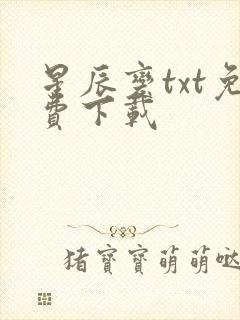 星辰變txt免
費下載
猪寶寶萌萌哒